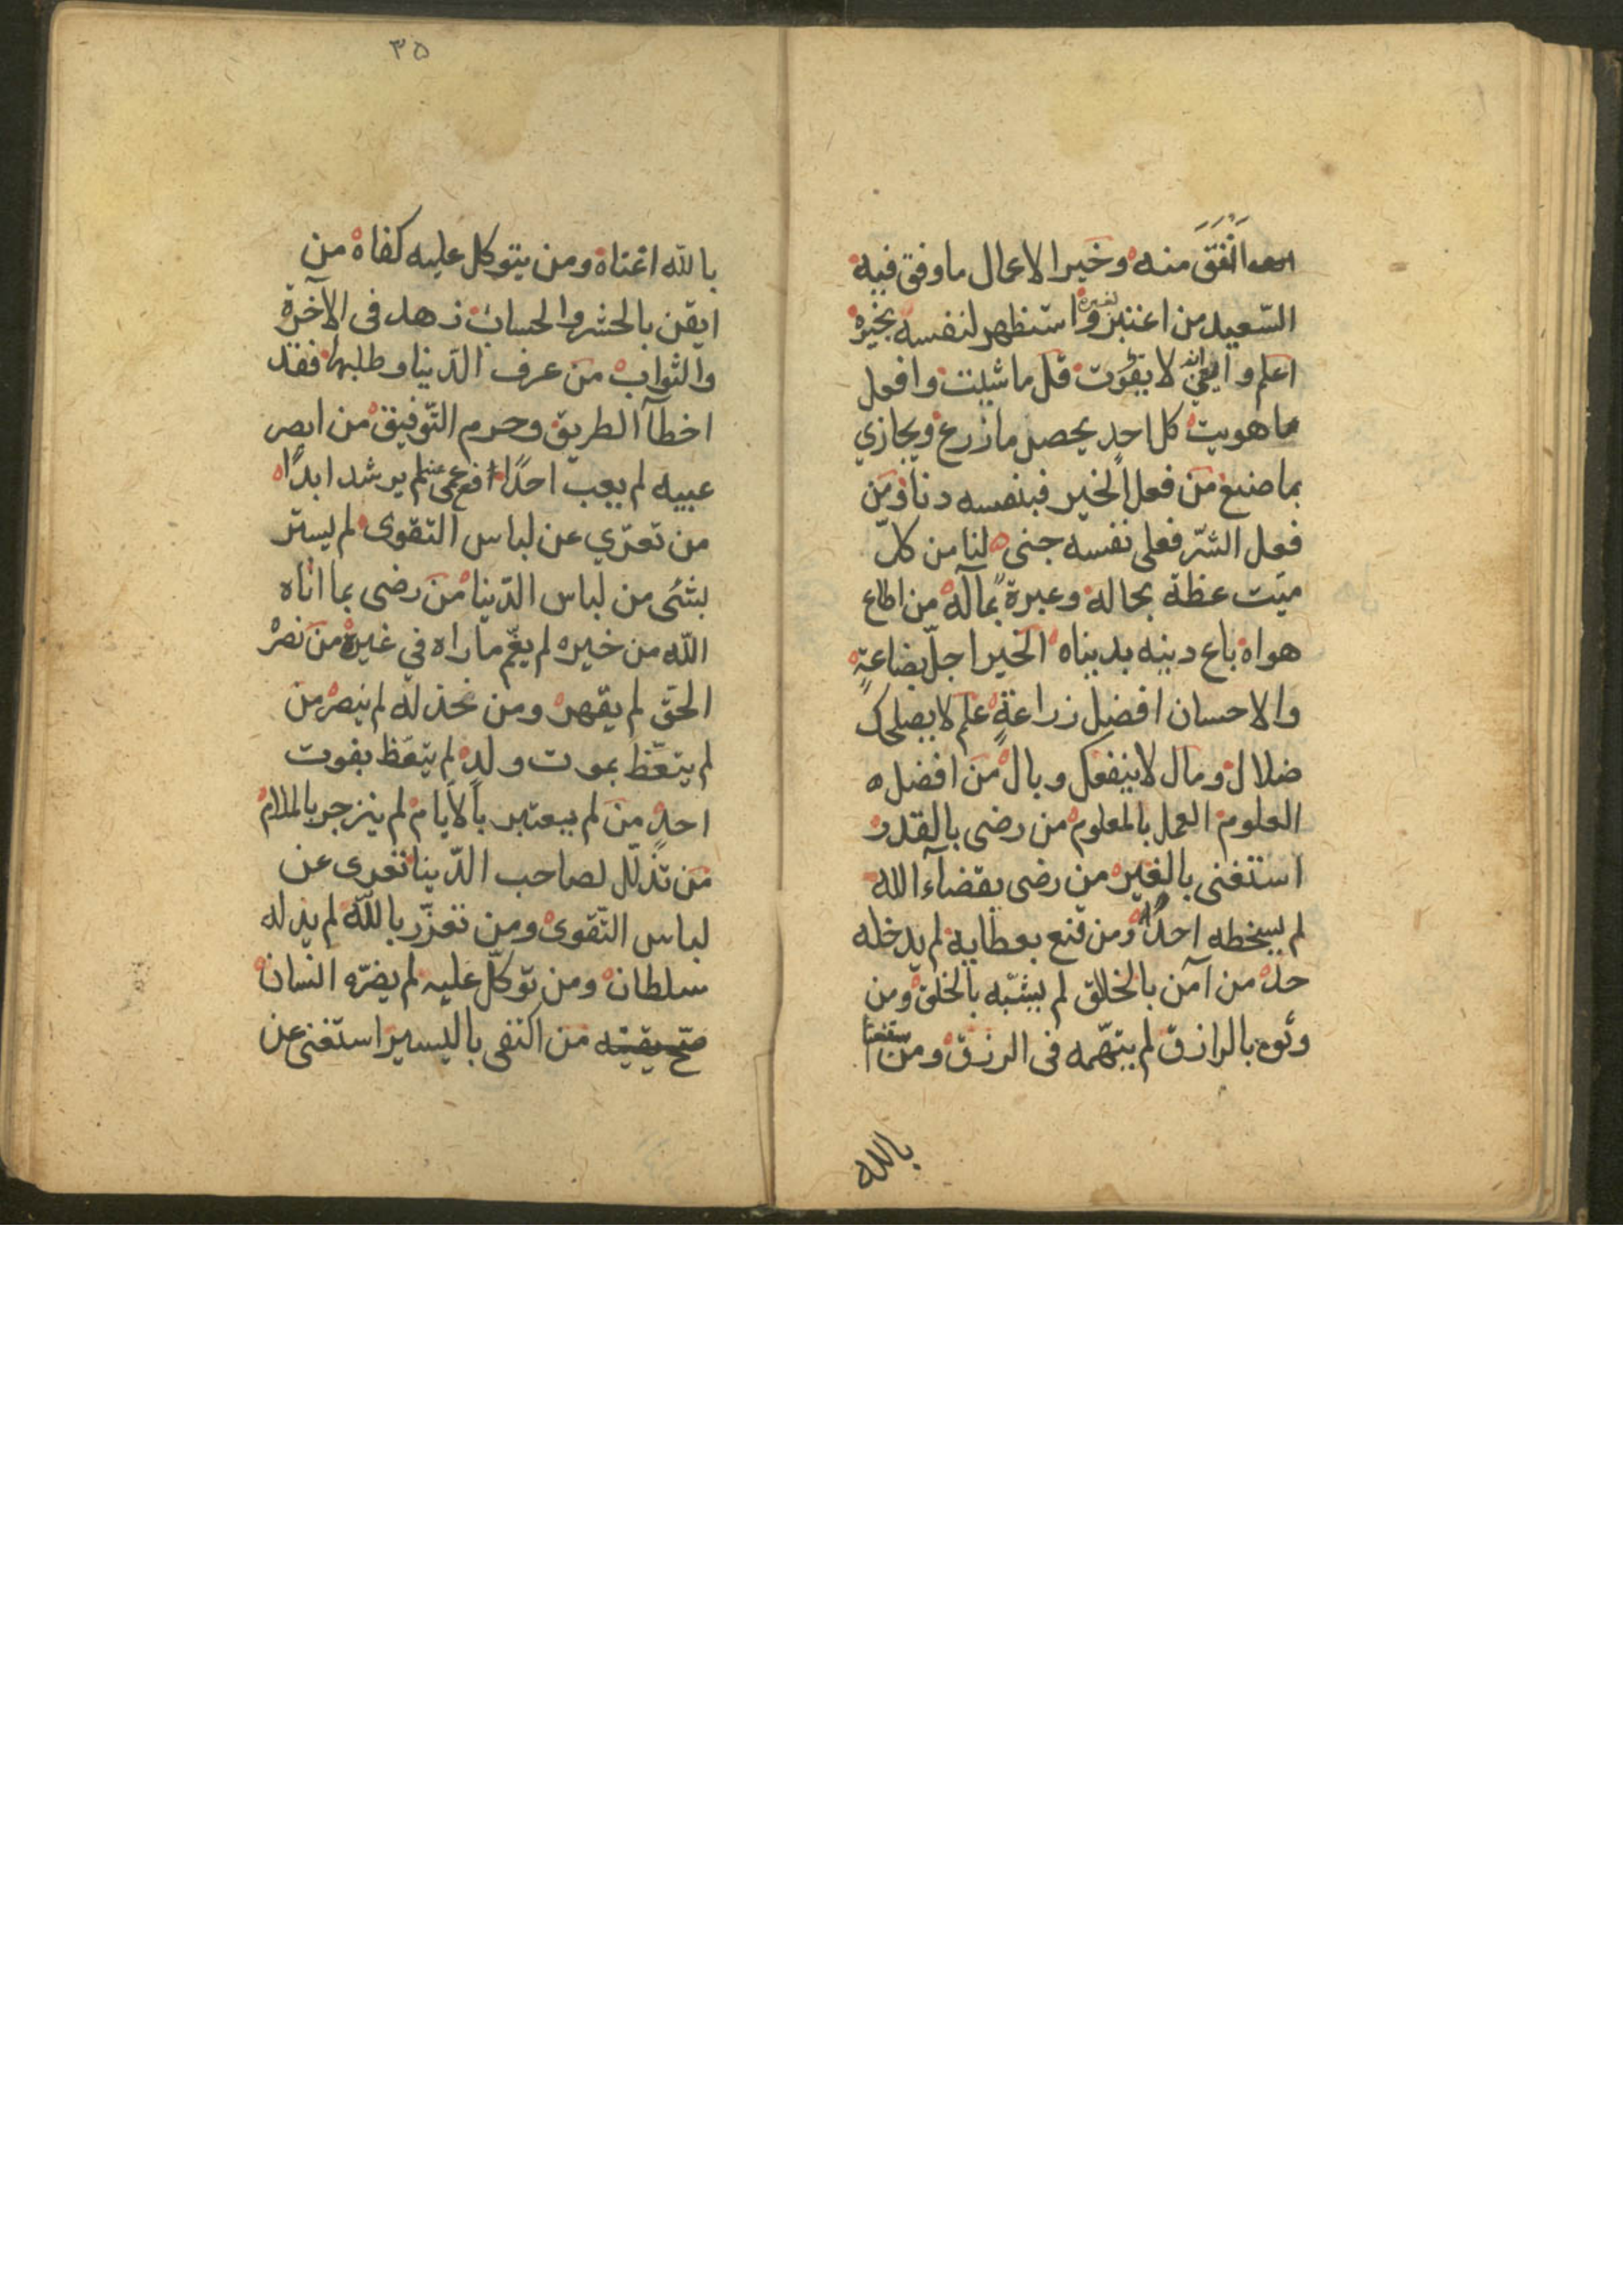 انفق منه وخير الاعمال ما وفق فيه
السّعيد من اعتبر بغيره و استظهر لنفسه بخيره
اعلم و ان الله لا يفوت قل ما شئت وافعل
ما هويت كل احد يحصل ما زرع ويجازي
بما صنع من فعل الخير فبنفسه دنا ومن
فعل الشرّ فعلى نفسه جنى لنا من كلّ
ميّت عظة بحاله وعبرة بمآله من اطاع
هواه باع دينه بدنياه الخير اجلّ بضاعةٍ
والاحسان افضل زراعةٍ علم لا يصلحك
ضلال ومال لا ينفعك وبال من افضل
العلوم العمل بالمعلوم من رضى بالقدر
استغنى بالغير من رضى بقضآء الله
لم يسخطه احدًا ومن قنع بعطايه لم يدخله
حد من آمن بالخلاق لم يشبّه بالخلق ومن
وثوه بالرازق لم يتهّمه فى الرزق ومن استغنا
بالله
٣٥
بالله اغناه ومن يتوكل عليه كفاه من
ايقن بالحشر والحساب زهد فى الآخرة
والثواب من عرف الدّنيا وطلبها فقد
اخطآ الطريق وحرم التّوفيق من ابصر
عيبه لم يعب احدًا عمى لم يرشد ابدًا
من تعرّي عن لباس التقوى لم يستتر
بشئى من لباس الدّنيا من رضى بما اتاه
اللّه من خيره لم يغّم ما راه في غيره من نصر
الحق لم يقهر ومن نخذله لم ينصر من
لم يتعّظ بموت ولدٍ لم يتعّظ بفوت
احدٍ من لم يعتبر بالأيام لم ينزجر بالملام
من تذلّل لصاحب الدّينا تعرى عن
لباس التّقوى ومن تعزّر باللّه لم يذله
سلطان ومن توكّل عليه لم يضرّه انسان
صحّ يقينه من اكتفى باليسير استغنى عن